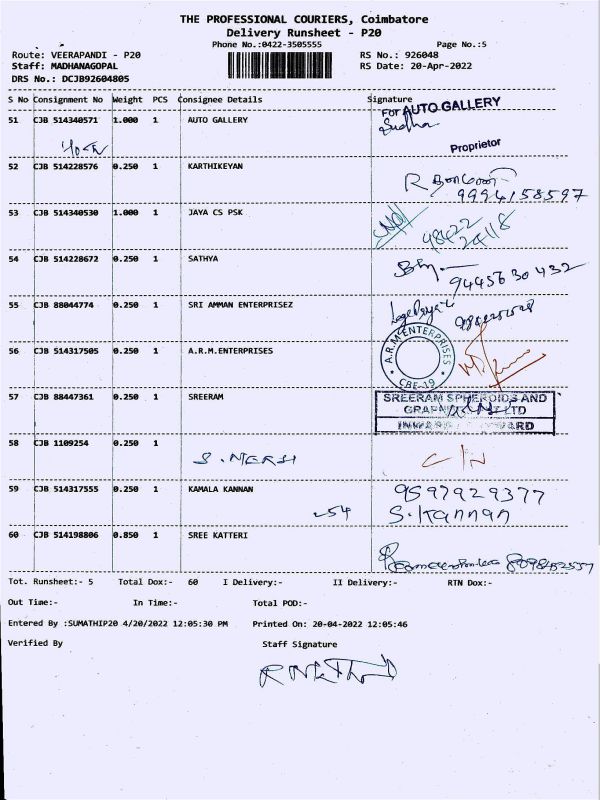 THE PROFESSIONAL COURIERS, Coimbatore
Delivery Runsheet - P20
Phone No.:0422-3505555 Page No.:5
Route: VEERAPANDI - P20 RS No.: 926048
Staff: MADHANAGOPAL RS Date: 20-Apr-2022
DRS No.: DCJB92604805
S No Consignment No Weight PCS Consignee Details Signature
51 CJB 514340571 1.000 1 AUTO GALLERY For AUTO GALLERY
Sudha
Proprietor
52 CJB 514228576 0.250 1 KARTHIKEYAN
9994158597
53 CJB 514340530 1.000 1 JAYA CS PSK
98422
24118
54 CJB 514228672 0.250 1 SATHYA
9445630432
55 CJB 88044774 0.250 1 SRI AMMAN ENTERPRISEZ
56 CJB 514317505 0.250 1 A.R.M.ENTERPRISES A.R.M ENTERPRISES
CBE-19
57 CJB 88447361 0.250 1 SREERAM SREERAM SPHEROIDS AND
LTD
58 CJB 1109254 0.250 1
59 CJB 514317555 0.250 1 KAMALA KANNAN 9597929377
S. Kannan
60 CJB 514198806 0.850 1 SREE KATTERI
Tot. Runsheet:- 5 Total Dox:- 60 I Delivery:- II Delivery:- RTN Dox:-
Out Time:- In Time:- Total POD:-
Entered By :SUMATHIP20 4/20/2022 12:05:30 PM Printed On: 20-04-2022 12:05:46
Verified By Staff Signature